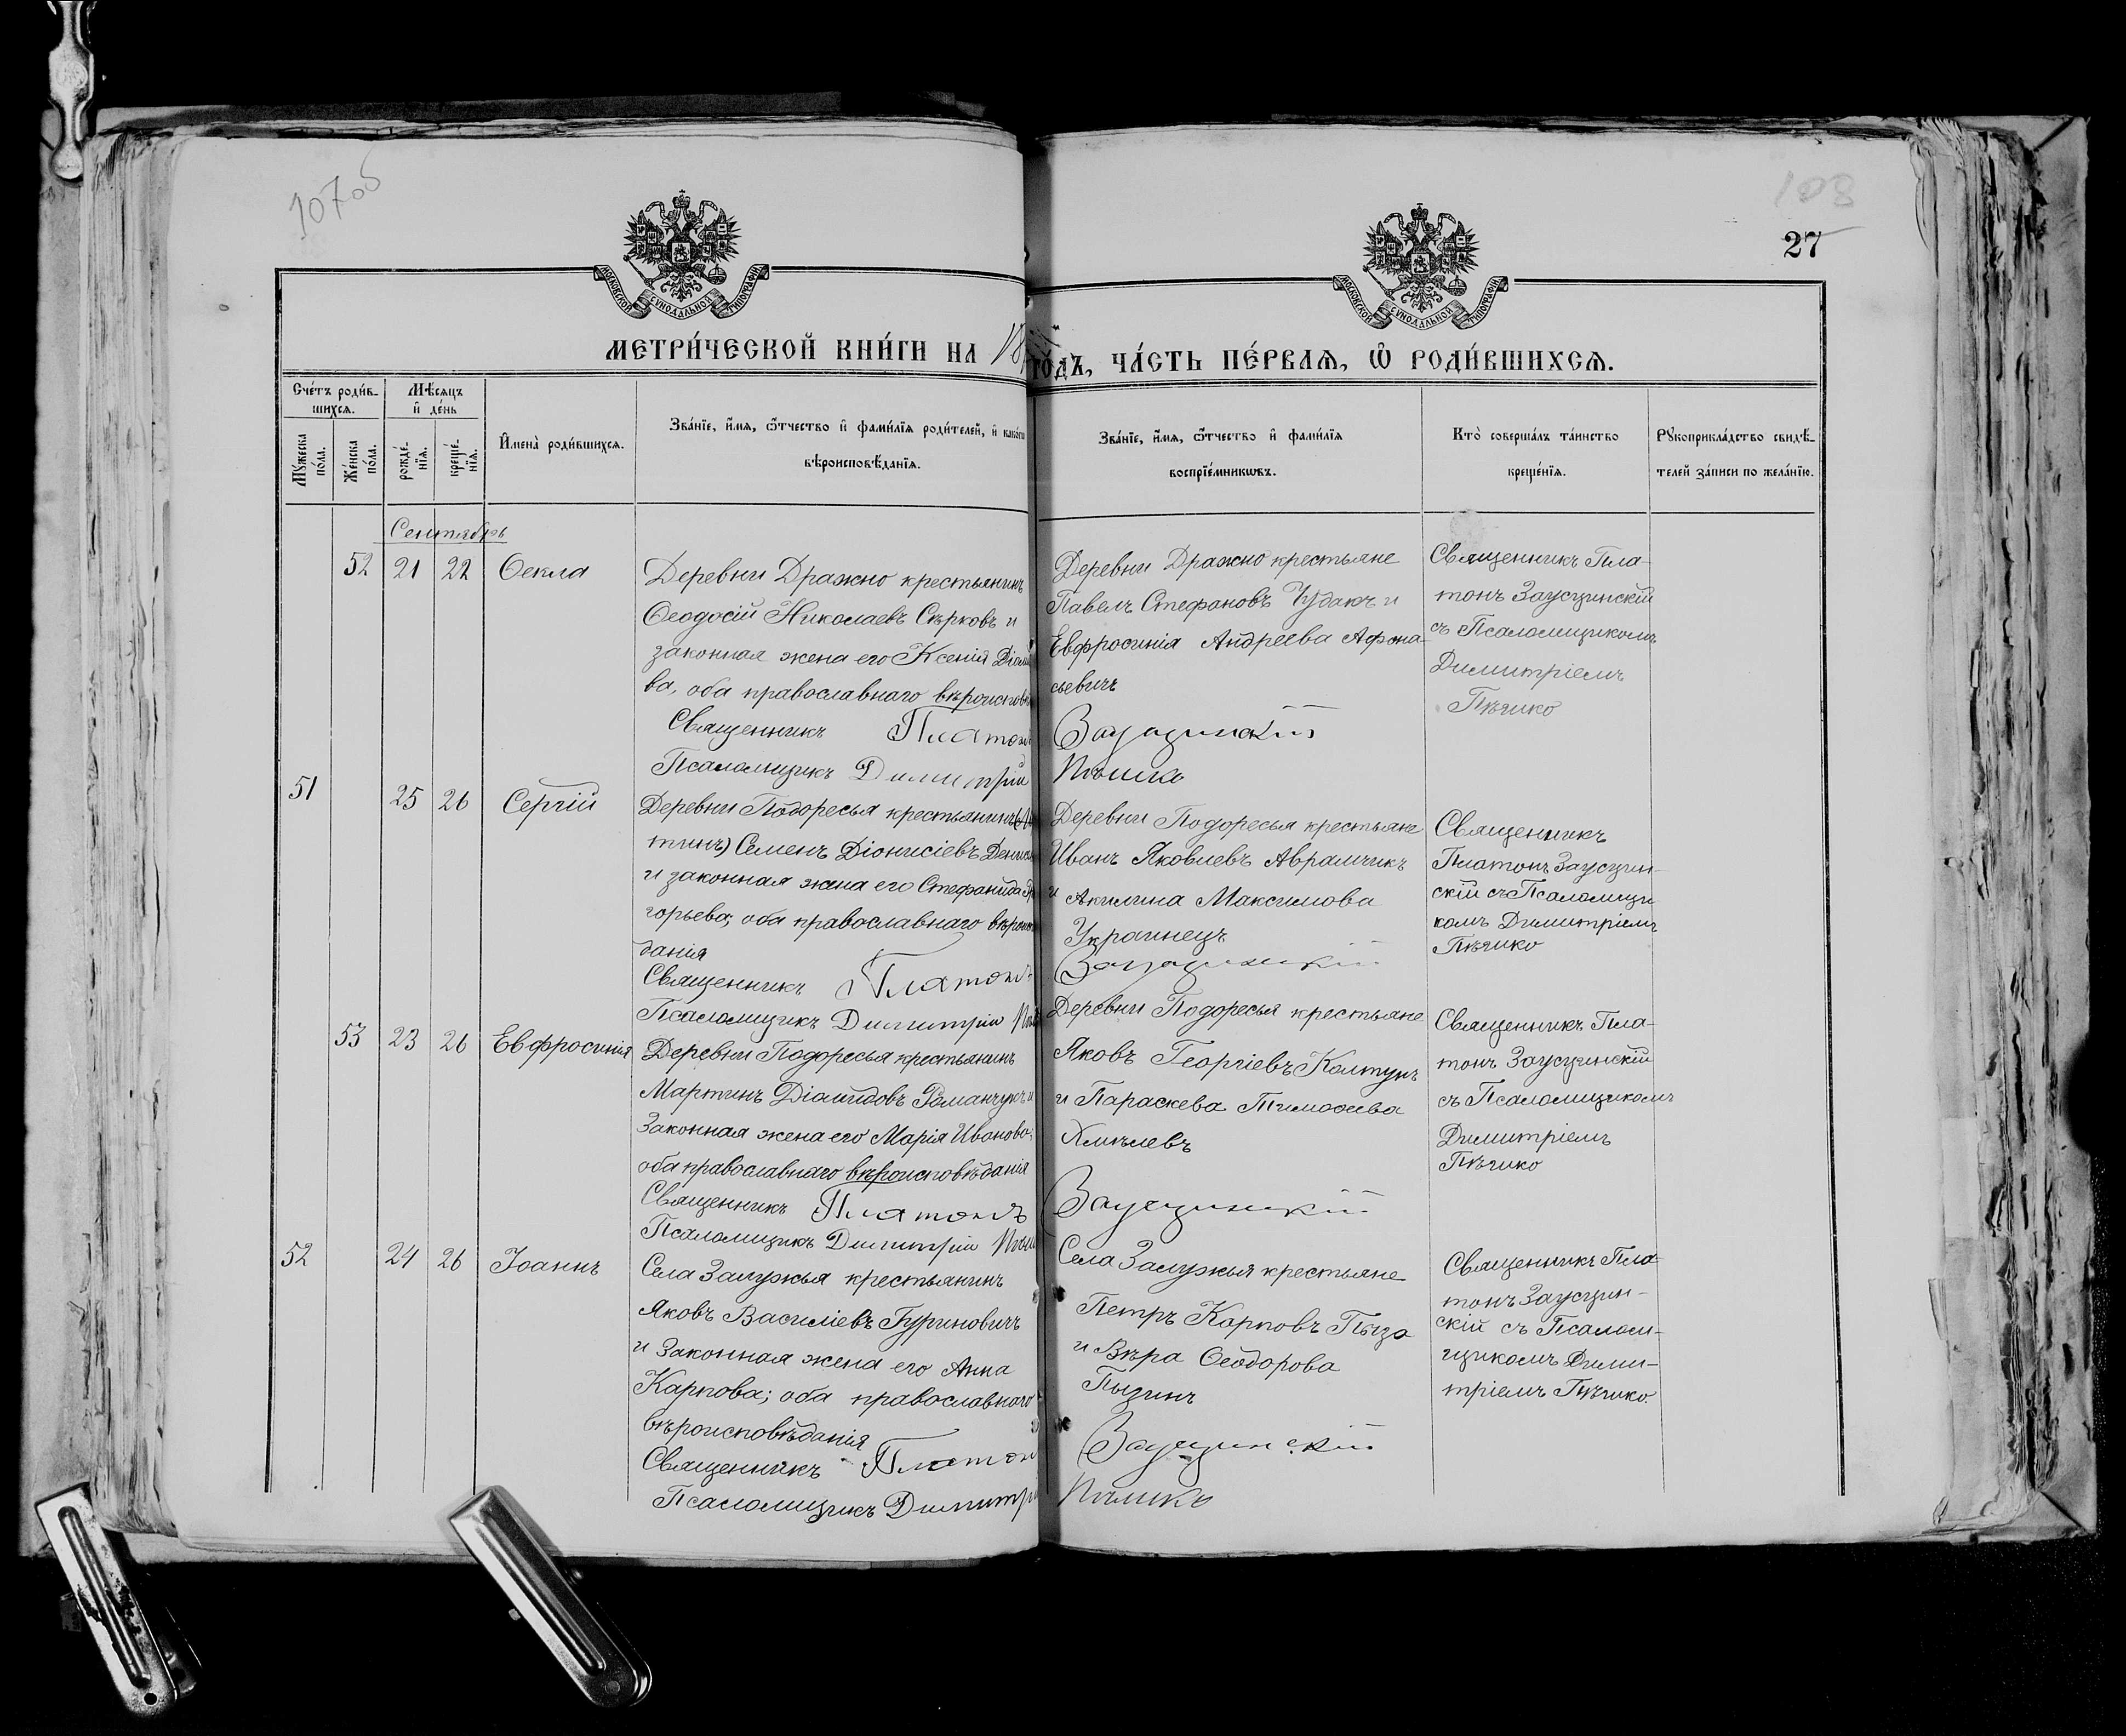 107об
108
27
МОСКОВСКОЙ СѴНОДАЛЬНОЙ ТИПОГРАФІИ
МОСКОВСКОЙ СѴНОДАЛЬНОЙ ТИПОГРАФІИ
МЕТРИ́ЧЕСКОЙ КНИ́ГИ НА 18
ГО́ДЪ, ЧА́СТЬ ПЕ́РВАѦ, Ѽ РОДИ́ВШИХСѦ.
Сче́тъ роди́в-
шихсѧ.
Мꙋ́жеска по́ла.
Же́нска по́ла.
Мѣ́сѧцъ
и҆ де́нь
рожде́-
нїѧ.
креще́-
нїѧ.
И҆мена̀ роди́вшихсѧ.
Зва́нїе, и҆́мѧ, ѻ҆́тчество и҆ фами́лїѧ роди́телей, и҆ како́гѡ
вѣроисповѣ́данїѧ.
Зва́нїе, и҆́мѧ, ѻ҆́тчество и҆ фами́лїѧ
воспрїе́мникѡвъ.
Кто̀ соверша́лъ та́инство
креще́нїѧ.
Рꙋкоприкла́дство свидѣ́-
телей за́писи по жела́нїю.
Сентябрь
52 21 22 Ѳекла
Деревни Дражно крестьянинъ
Ѳеодосій Николаевъ Сѣрковъ и
законная жена его Ксенія
ва, оба православнаго вѣроисповѣ
Священникъ Платонъ
Псаломщикъ Димитрій
Деревни Дражно крестьяне
Павелъ Стефановъ Чудакъ и
Евфросинія Андреева Афона-
сьевичъ
Заусцинскій
Пѣшко
Священникъ Пла-
тонъ Заусцинскій
съ Псаломщикомъ
Димитріемъ
Пѣшко
51 25 26 Сергій
Деревни Подоресья крестьянинъ
тинъ) Семенъ Діонисіевъ
и законная жена его Стефанида Гри
горьева; оба православнаго
данія
Священникъ Платонъ
Псаломщикъ Димитрій
Деревни Подоресья крестьяне
Иванъ Яковлевъ Аврамчикъ
и Акилина Максимова
Украинецъ
Заусцинскій
Священникъ
Платонъ Заусцин-
скій съ Псаломщи
комъ Димитріемъ
Пѣшко
53 23 26 Евфросинія
Деревни Подоресья крестьянинъ
Мартинъ Діомидовъ Романчукъ и
Законная жена его Марія Иванова;
оба православнаго вѣроисповѣданія
Священникъ Платонъ
Псаломщикъ Димитрій
Деревни Подоресья крестьяне
Яковъ Георгіевъ Колтунъ
и Параскева Тимоѳеева
Хмѣлевъ
Заусцинскій
Священникъ Пла-
тонъ Заусцинскій
съ Псаломщикомъ
Димитріемъ
Пѣшко
52 24 26 Іоаннъ
Села Залужья крестьянинъ
Яковъ Василіевъ Гуриновичъ
и Законная жена его Анна
Карпова; оба православнаго
вѣроисповѣданія
Священникъ Платонъ
Псаломщикъ Димитрій
Села Залужья крестьяне
Петръ Карповъ Пыза
и Вѣра Ѳеодорова
Пызинъ
Заусцинскій
Пѣшко
Священникъ Пла-
тонъ Заусцин-
скій съ Псалом-
щикомъ Дими-
тріемъ Пѣшко.